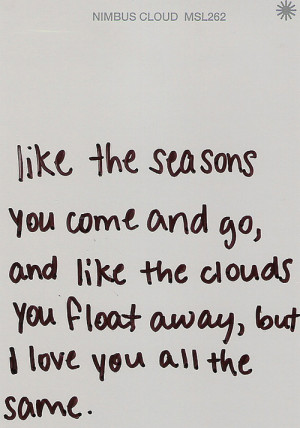 NIMBUS CLOUD MSL262
like the seasons
you come and go,
and like the clouds
you float away, but
I love you all the
same.